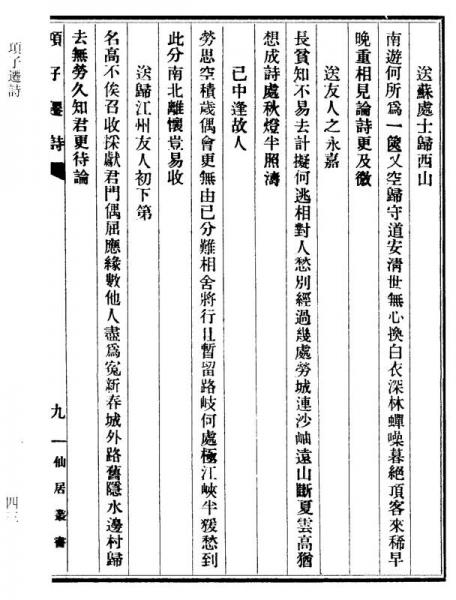 送蘇處士歸西山
南遊何所爲一篋又空歸守道安淸世無心換白衣深林蟬噪暮絕頂客來稀早
晚重相見論詩更及微
送友人之永嘉
長貧知不易去計擬何逃相對人愁別經過幾處勞城連沙岫遠山斷夏雲高猶
想成詩處秋燈半照濤
巴中逢故人
勞思空積歲偶會更無由已分難相舍將行且暫留路岐何處極江峽半猨愁到
此分南北離懷豈易收
送歸江州友人初下第
名高不俟召收採獻君門偶屈應緣數他人盡爲寃新春城外路舊隱水邊村歸
去無勞久知君更待論
項子遷詩
九
仙居叢書
項子遷詩
四三